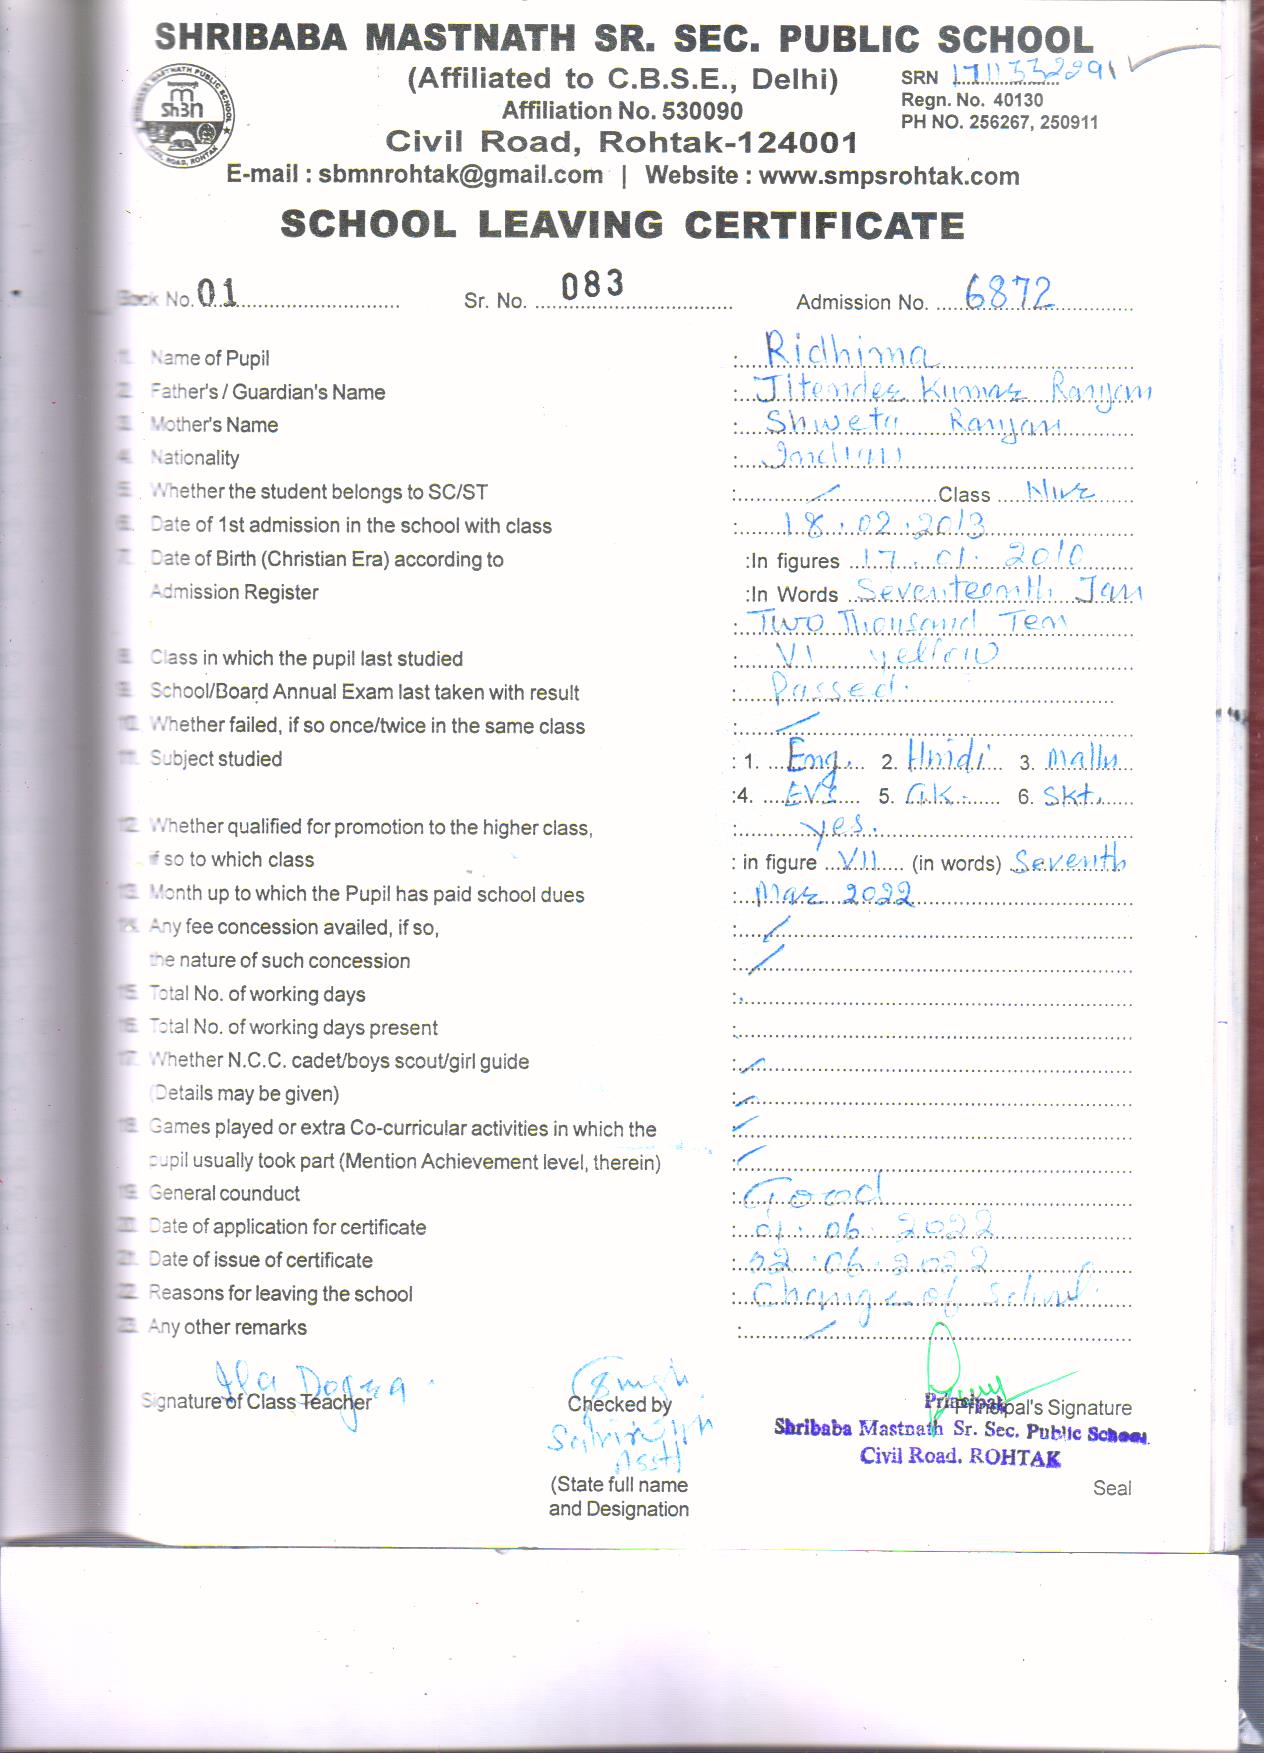 SHRIBABA MASTNATH SR. SEC. PUBLIC SCHOOL
(Affiliated to C.B.S.E., Delhi)
SRN
Affiliation No. 530090
Regn. No. 40130
PH NO. 256267, 250911
Civil Road, Rohtak-124001
E-mail : sbmnrohtak@gmail.com | Website : www.smpsrohtak.com
SCHOOL LEAVING CERTIFICATE
Book No. 01 Sr. No. 083 Admission No. 6872
1. Name of Pupil : Ridhima
2. Father's / Guardian's Name : Jitender Kumar Ranjan
3. Mother's Name : Shweta Ranjan
4. Nationality : Indian
5. Whether the student belongs to SC/ST : / Class Nur
6. Date of 1st admission in the school with class : 18.02.2013
7. Date of Birth (Christian Era) according to :In figures 17.01.2010
Admission Register :In Words Seventeenth Jan
: Two Thousand Ten
8. Class in which the pupil last studied : VI yellow
9. School/Board Annual Exam last taken with result : Passed.
10. Whether failed, if so once/twice in the same class : /
11. Subject studied : 1. Eng. 2. Hindi 3. Maths
:4. EVS 5. G.K. 6. Skt.
12. Whether qualified for promotion to the higher class, : yes.
if so to which class : in figure VII (in words) Seventh
13. Month up to which the Pupil has paid school dues : Mar 2022
14. Any fee concession availed, if so, : /
the nature of such concession : /
15. Total No. of working days :
16. Total No. of working days present :
17. Whether N.C.C. cadet/boys scout/girl guide : /
(Details may be given) : /
18. Games played or extra Co-curricular activities in which the : /
pupil usually took part (Mention Achievement level, therein) : /
19. General counduct : Good
20. Date of application for certificate : 01.06.2022
21. Date of issue of certificate : 02.06.2022
22. Reasons for leaving the school : Change of School.
23. Any other remarks : /
Ila Dogra
Signature of Class Teacher Checked by Principal's Signature
Principal
Shribaba Mastnath Sr. Sec. Public School
Asstt
Civil Road, ROHTAK
(State full name Seal
and Designation